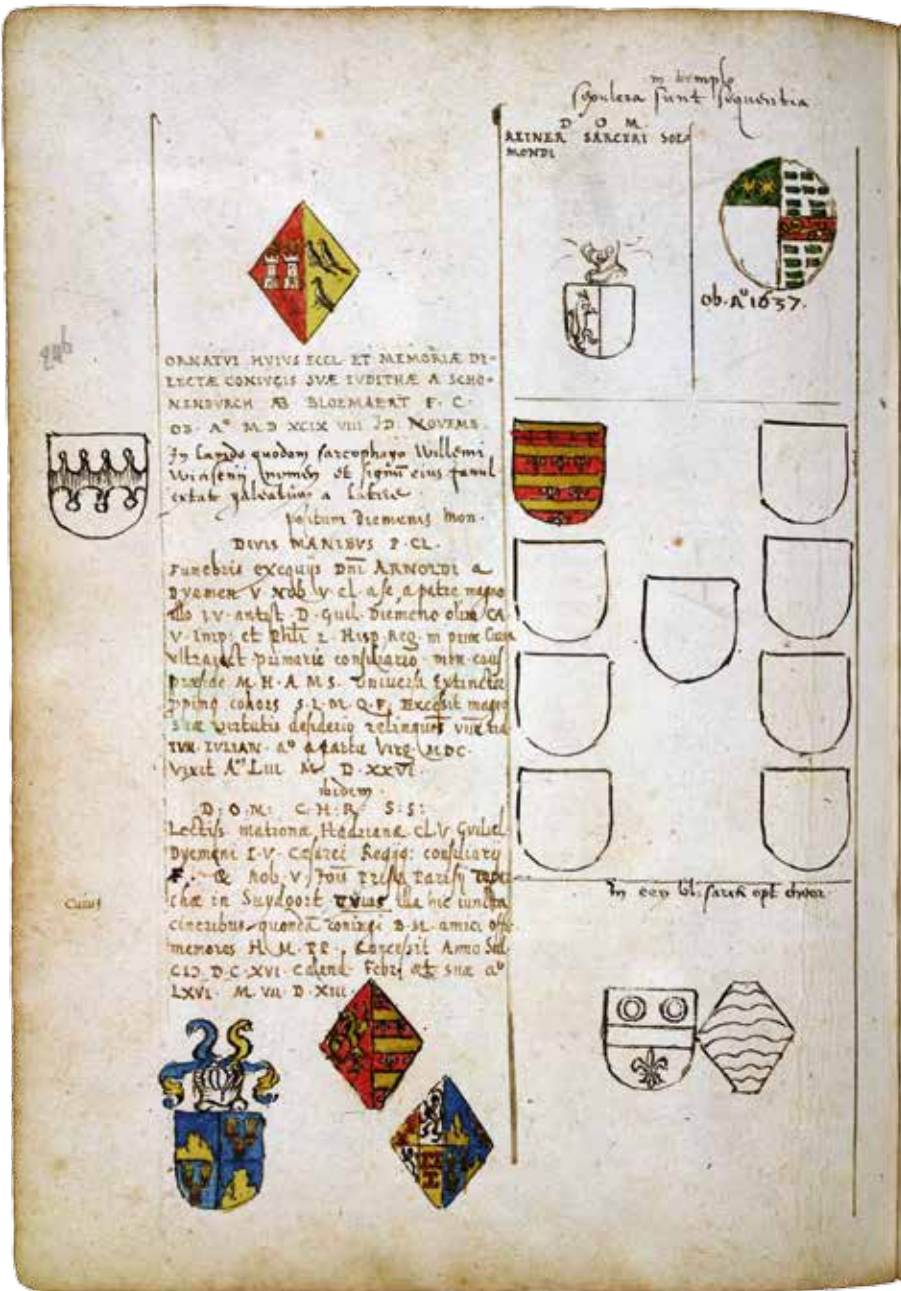 in templo
sepulcra sunt sequentia
D O M
REINER SARCERI SOL
MONDI
ob. Aº 1637.
ORNATVI HVIVS ECCL. ET MEMORIÆ DI-
LECTÆ CONIVGIS SVÆ IVDITHÆ A SCHO-
NENBVRCH AB BLOEMAERT F. C.
OB. Aº M.D XCIX VIII ID NOVEMB.
In lapide quodam sarcophago Willemi
nomen et signū eius famil
extat galeatum a latere.
positum Diemenis mon.
DIVIS MANIBVS P. CL.
Funebris exequijs Dnī ARNOLDI a
Dyemen V Nob V cl a se, a patre magno
illo I V antist. D. Guil. Diemeno olim CA.
V. Imp: et Phli 2 Hisp Reg. in prime Curia
Vltraject primarie consiliario mon
præside M. H. A. M S. Universa Extincta
cohors S. L. M. Q. F. Excessit magno
suæ virtutis desiderio relinquens
IVLIAN. aº a partu Virg. MDC
Vixit Aº LIII M D. XXVI.
ibidem.
D: O M: C. H. R S. S:
Lectiss matronæ Hadrianæ CL V. Guiliel
Dyemeni I. V. Cæsarei Regiq: consiliarij
F. & Nob. V.
in Suydoort illa hic iuncta
cineribus quondā coniugi B. M. amici
memores H. M. Concessit Anno Sal
CIↃ D.C.XVI Calend Febr. æt suæ aº
LXVI. M. VII D. XIII.
Cuius
In een bl. sarck opt choor